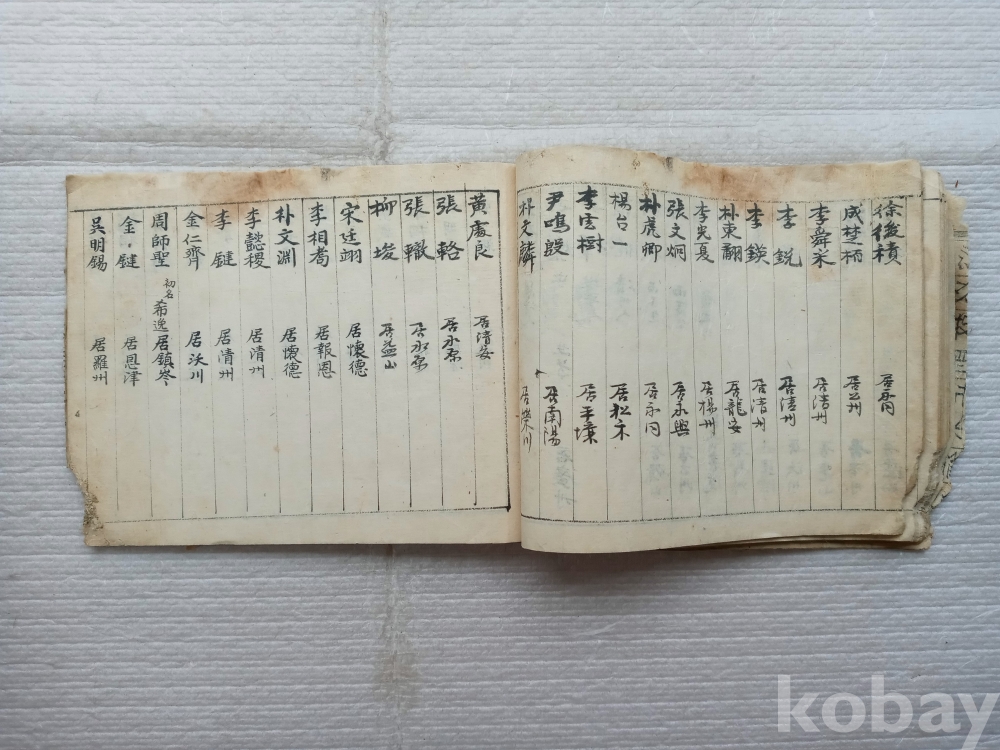 徐後積 居永同
成楚柄 居公州
李舜采 居清州
李銳 居清州
李鍈 居清州
朴東翮 居龍安
李奐夏 居楊州
張文炯 居永興
朴虎卿 居永同
楊台一 居松禾
李宏樹 居平壤
尹鳴殷 居南陽
朴文麟 居榮川
黃處良 居清安
張輅 居水原
張轍 居水原
柳埈 居益山
宋廷翊 居懷德
李相耆 居報恩
朴文淵 居懷德
李懿稷 居清州
李鍵 居清州
金仁齊 居沃川
周師聖 初名希逸 居鎮岑
金鍵 居恩津
吳明錫 居羅州
kobay